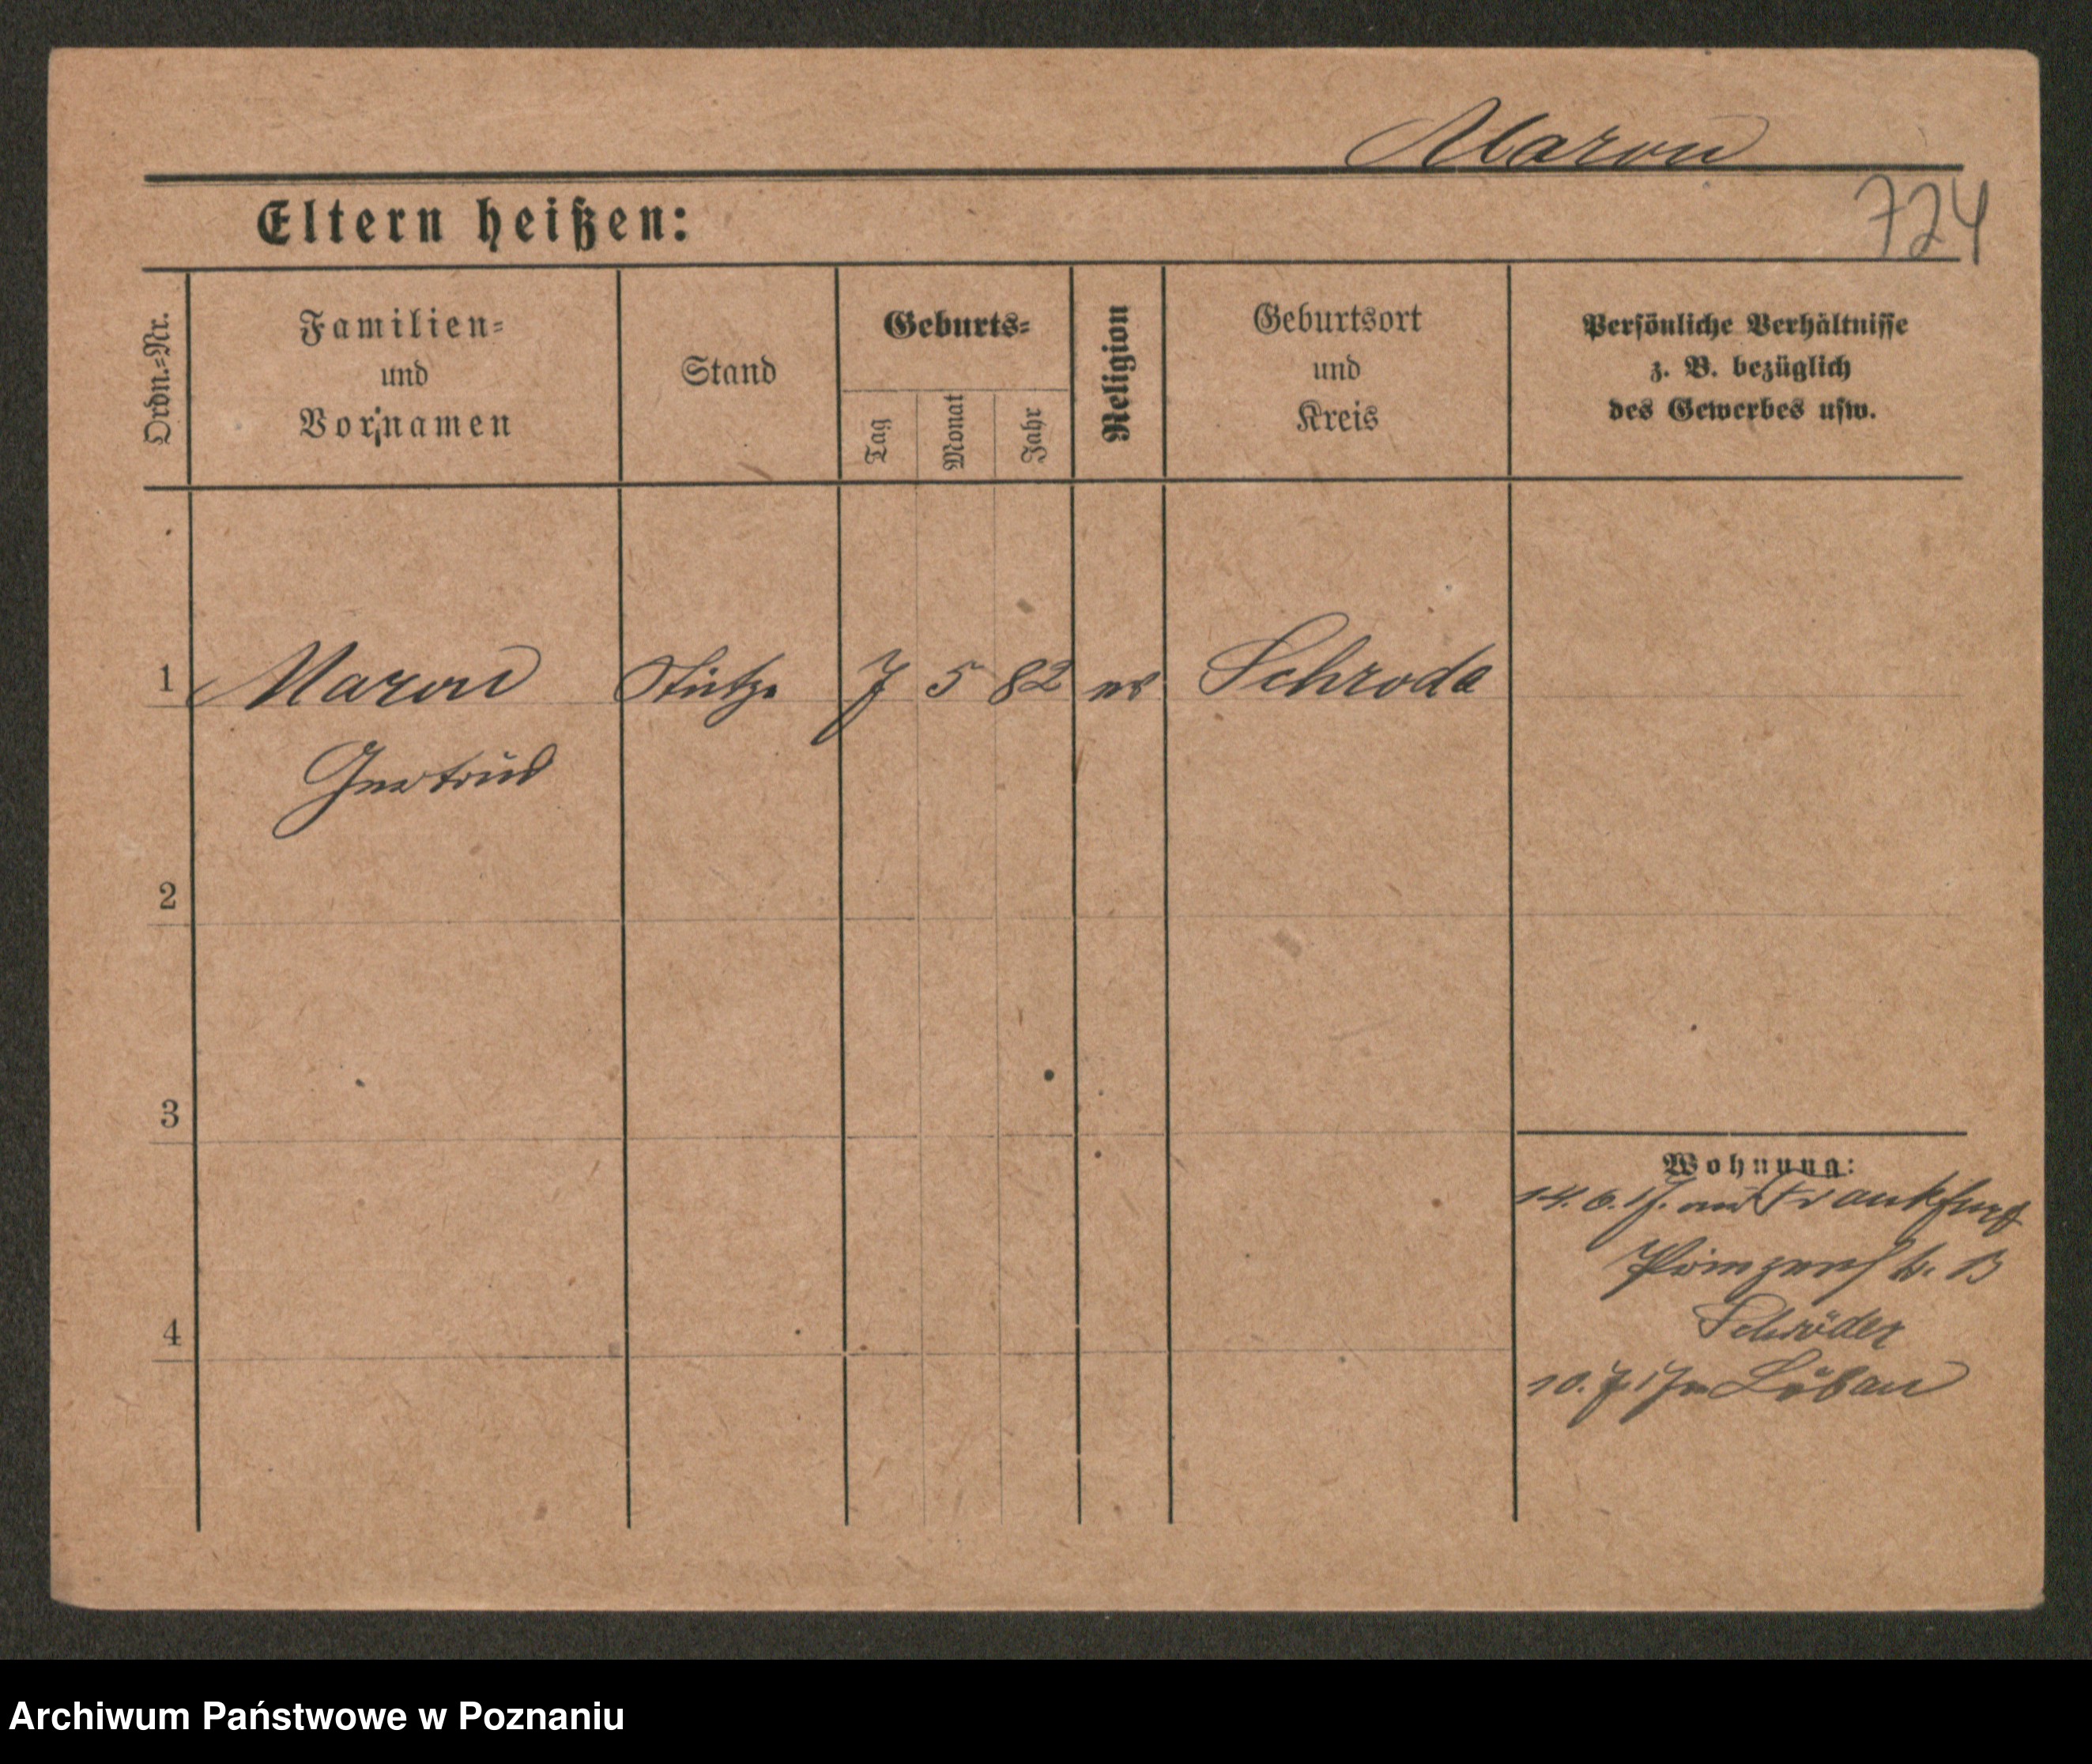 Maron
724
Eltern heißen:
Ordn.=Nr.
Familien=
und
Vornamen
Stand
Geburts=
Tag
Monat
Jahr
Religion
Geburtsort
und
Kreis
Persönliche Verhältnisse
z. B. bezüglich
des Gewerbes usw.
1 Maron Stütze 7 5 82 ev Schroda
Gertrud
2
3
4
Wohnung:
14. 6. 17. Frankfurt
Prinzenstr. 13
Schröder
10. 7. 17 Löbau
Archiwum Państwowe w Poznaniu